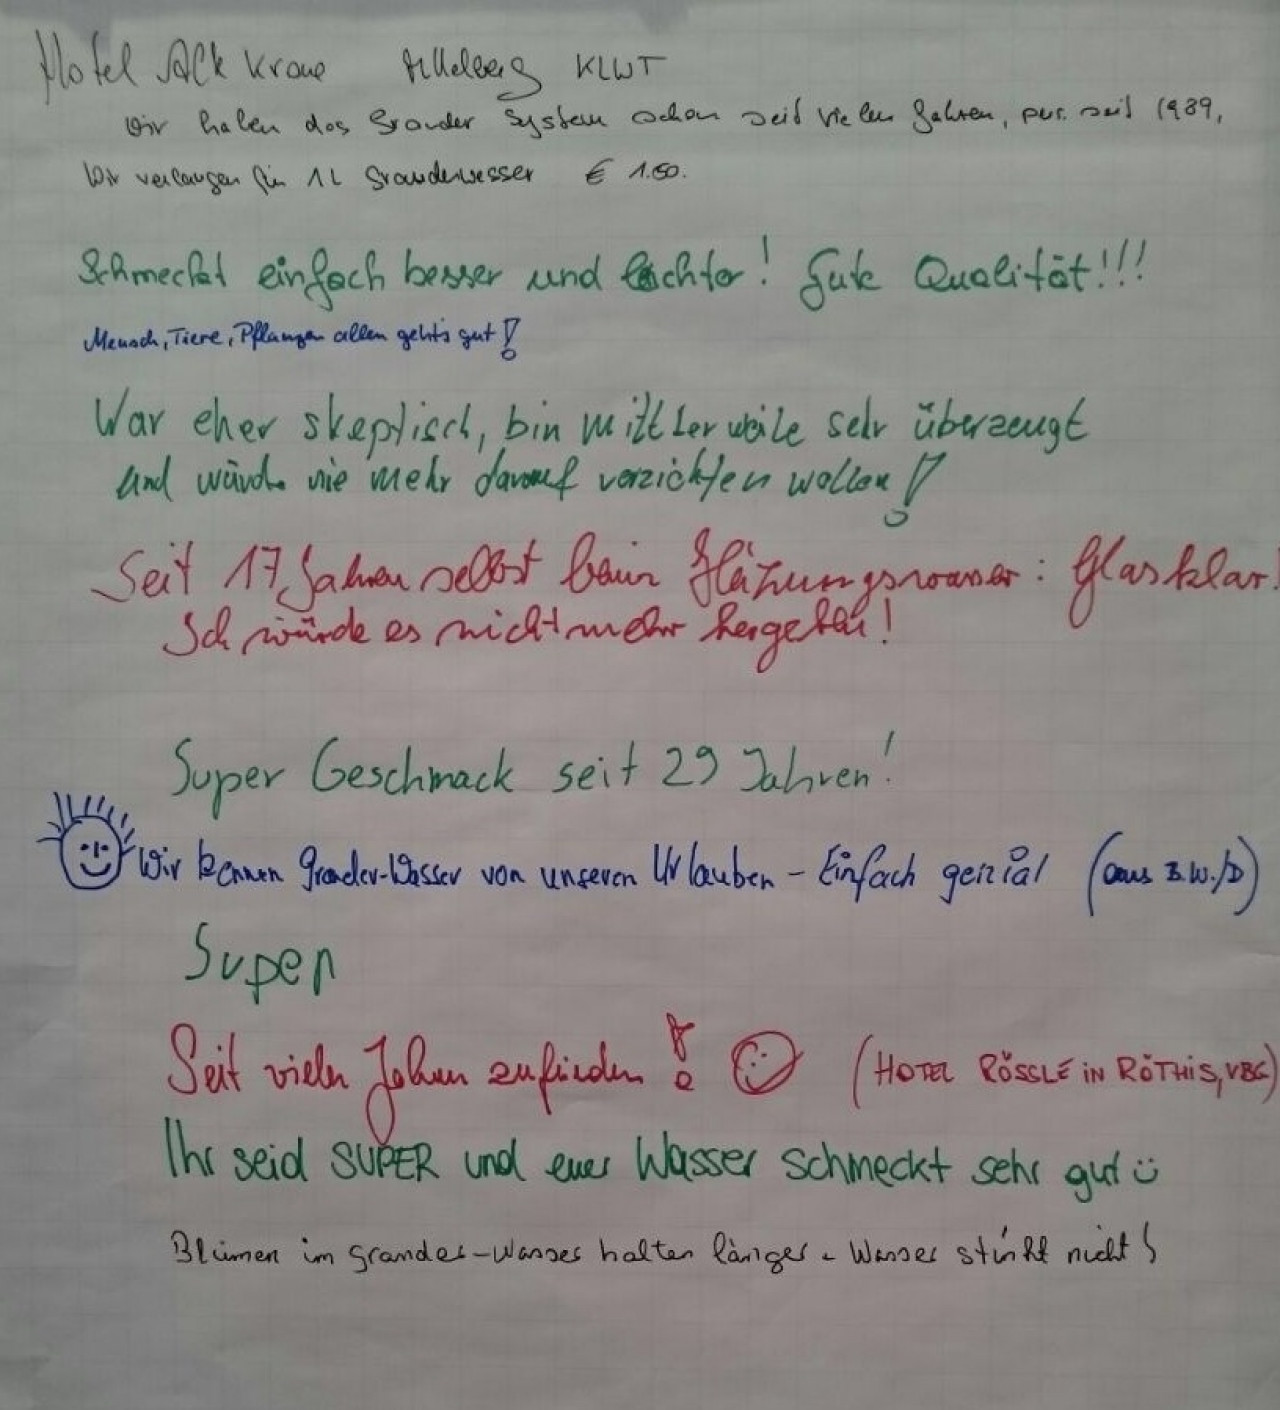 Hotel Alte Krone Mittelberg KLWT
Wir haben das Grander System schon seit vielen Jahren, pers. seit 1989,
Wir verlangen für 1 L Granderwasser € 1.50.
Schmeckt einfach besser und leichter! Gute Qualität!!!
Mensch, Tiere, Pflanzen allen geht's gut!
War eher skeptisch, bin mittlerweile sehr überzeugt
und würde nie mehr darauf verzichten wollen!
Seit 17 Jahren selbst beim Heizungswasser: Glasklar!
Ich würde es nicht mehr hergeben!
Super Geschmack seit 29 Jahren!
Wir kennen Grander-Wasser von unseren Urlauben - Einfach genial (aus B.W./D)
Super
Seit vielen Jahren zufrieden! (HOTEL RÖSSLE in RÖTHIS, VBG)
Ihr seid SUPER und euer Wasser schmeckt sehr gut
Blumen im Grander-Wasser halten länger - Wasser stinkt nicht!